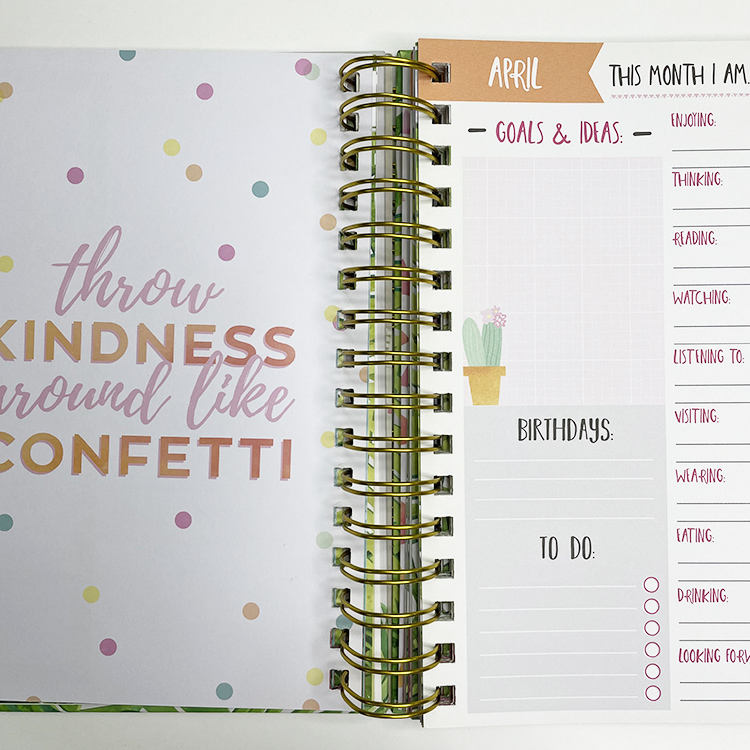 throw
KINDNESS
around like
CONFETTI
APRIL
THIS MONTH I AM...
GOALS & IDEAS:
BIRTHDAYS:
TO DO:
ENJOYING:
THINKING:
READING:
WATCHING:
LISTENING TO:
VISITING:
WEARING:
EATING:
DRINKING:
LOOKING FORW